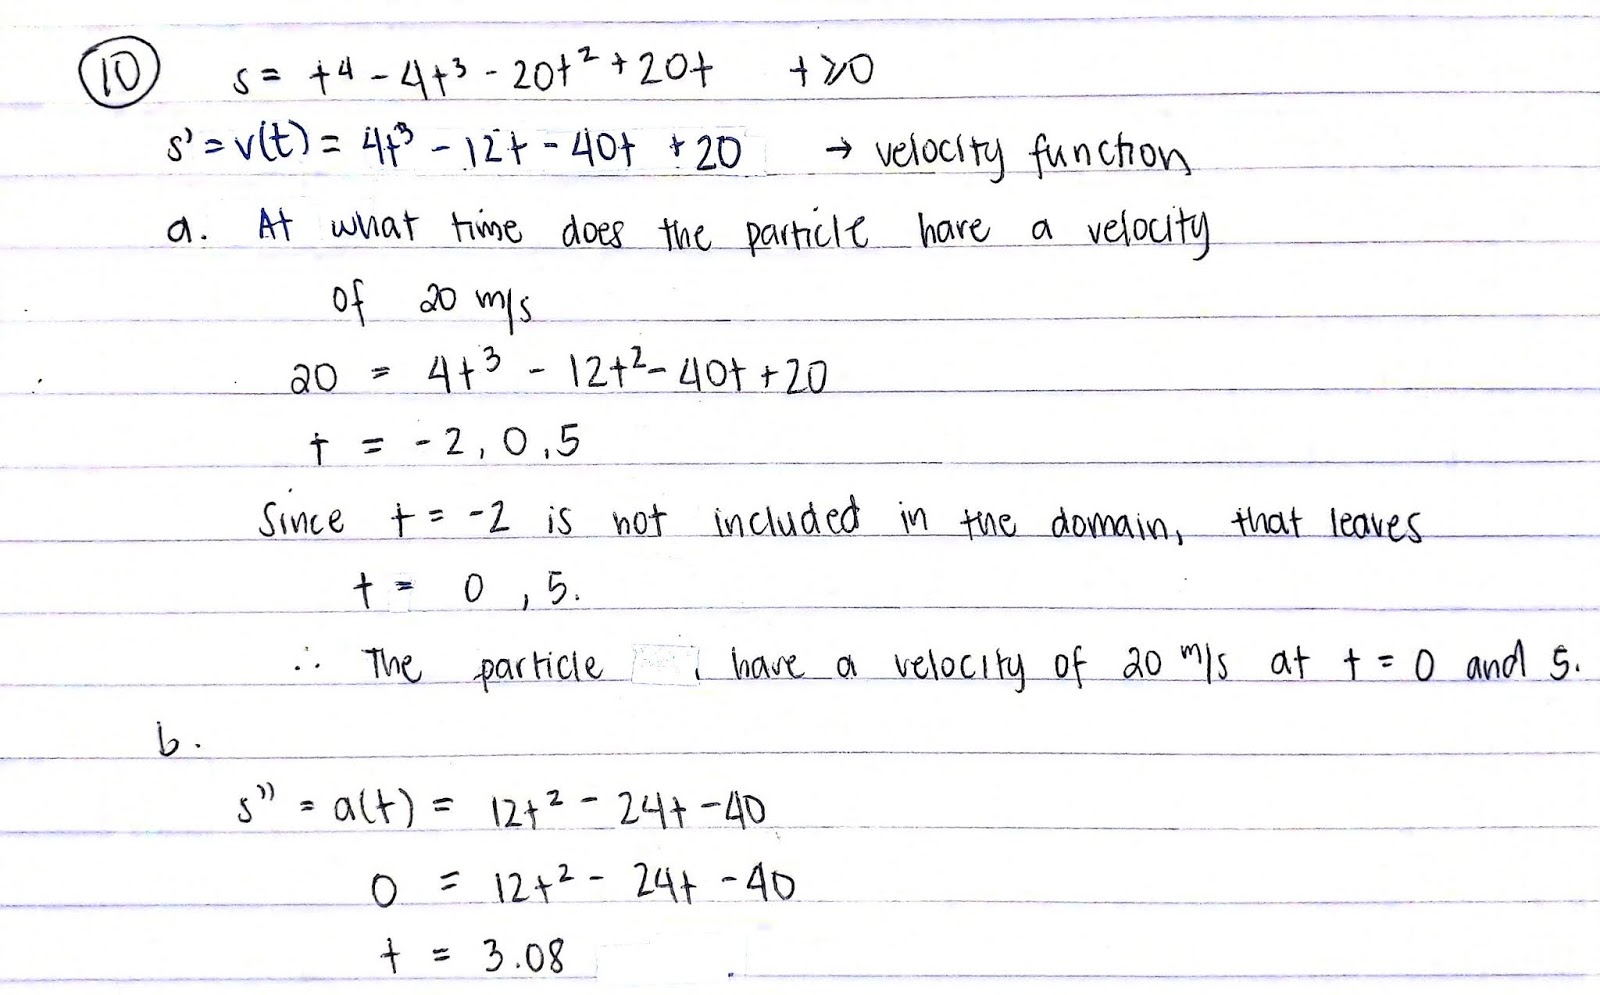 10 s = t⁴ - 4t³ - 20t² + 20t t ≥ 0
s' = v(t) = 4t³ - 12t - 40t + 20 → velocity function
a. At what time does the particle have a velocity
of 20 m/s
20 = 4t³ - 12t² - 40t + 20
t = -2, 0, 5
Since t = -2 is not included in the domain, that leaves
t = 0, 5.
∴ The particle have a velocity of 20 m/s at t = 0 and 5.
b.
s'' = a(t) = 12t² - 24t - 40
0 = 12t² - 24t - 40
t = 3.08